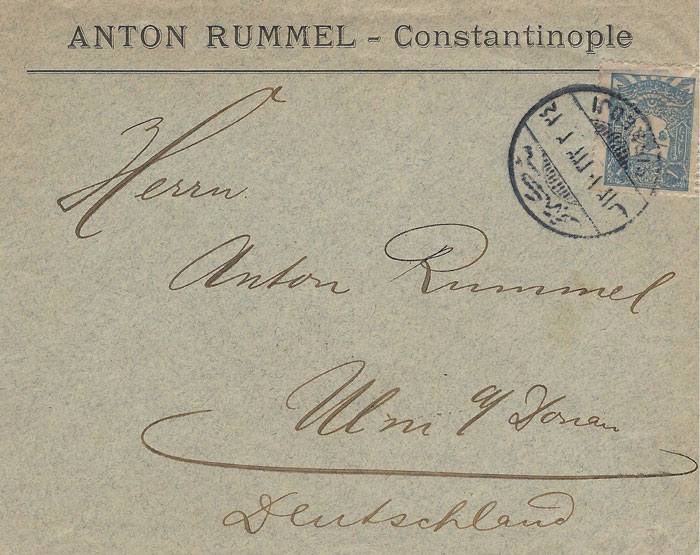 ANTON RUMMEL - Constantinople
Herrn
Anton Rummel
Ulm a/ Donau
Deutschland